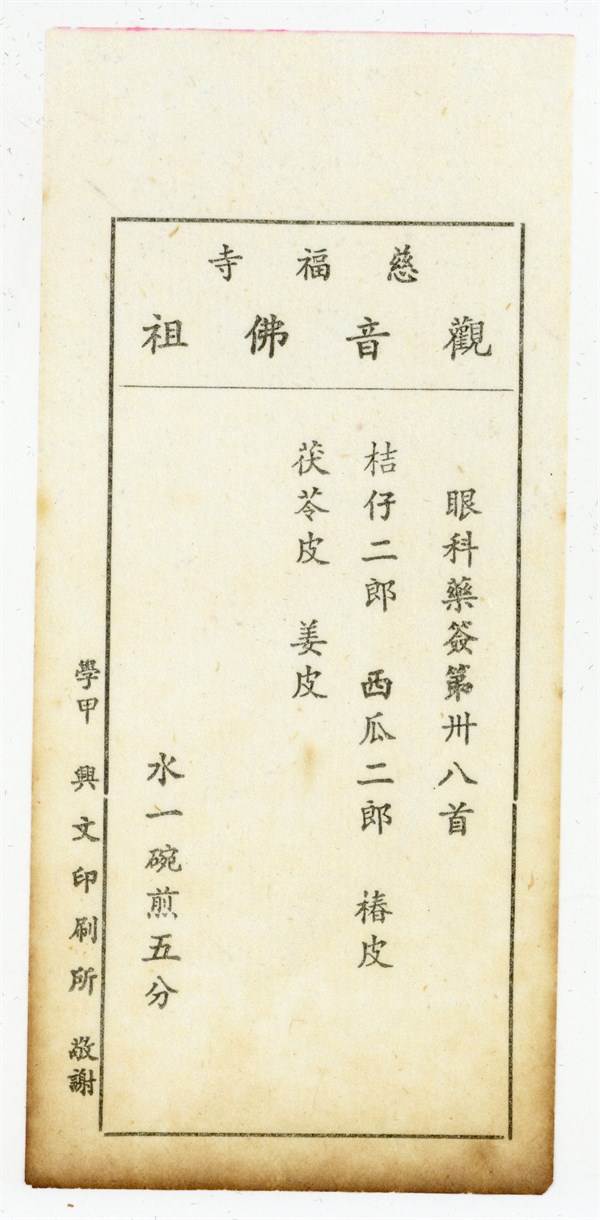 慈福寺
觀音佛祖
眼科藥簽第卅八首
桔仔二郎 西瓜二郎 椿皮
茯苓皮 姜皮
水一碗煎五分
學甲 興文印刷所 敬謝